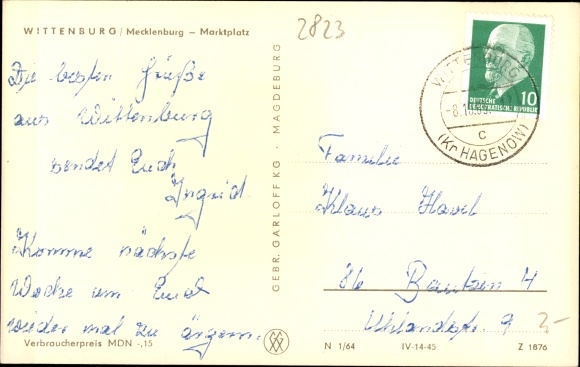 WITTENBURG / Mecklenburg — Marktplatz
2823
Die besten Grüße
aus Wittenburg
sendet Euch
Ingrid.
Komme nächste
Woche um Euch
wieder mal zu ärgern.
Verbraucherpreis MDN -,15
GEBR. GARLOFF KG · MAGDEBURG
10
DEUTSCHE
DEMOKRATISCHE REPUBLIK
WITTENBURG
-8.10.
c
(Kr. HAGENOW)
Familie
Klaus Havel
86 Bautzen 4
Uhlandstr. 9
2,-
N 1/64 IV-14-45 Z 1876